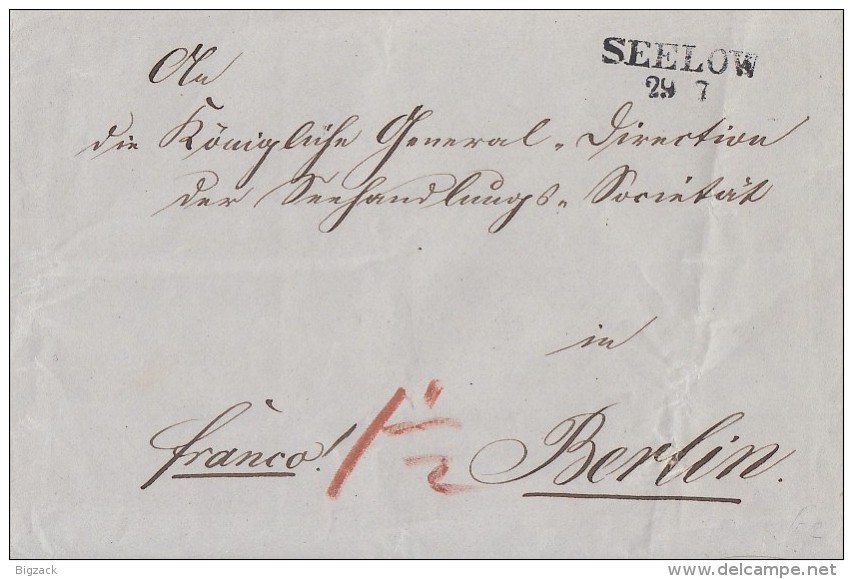 SEELOW
29 7
An
die Königliche General-Direction
der Seehandlungs-Societät
in
franco! 1 1/2 Berlin.
Bigzack
delcampe.net